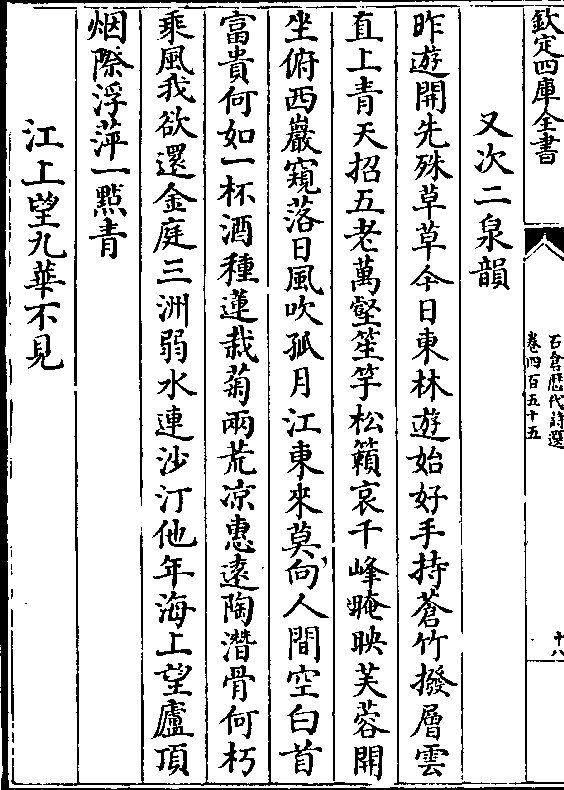 欽定四庫全書
石倉歷代詩選
卷四百五十五
十八
又次二泉韻
昨遊開先殊草草今日東林遊始好手持蒼竹撥層雲
直上青天招五老萬壑笙竽松籟哀千峰晻映芙蓉開
坐俯西巖窺落日風吹孤月江東來莫向人間空白首
富貴何如一杯酒種蓮栽菊兩荒凉惠遠陶潛骨何朽
乘風我欲還金庭三洲弱水連沙汀他年海上望廬頂
烟際浮萍一點青
江上望九華不見